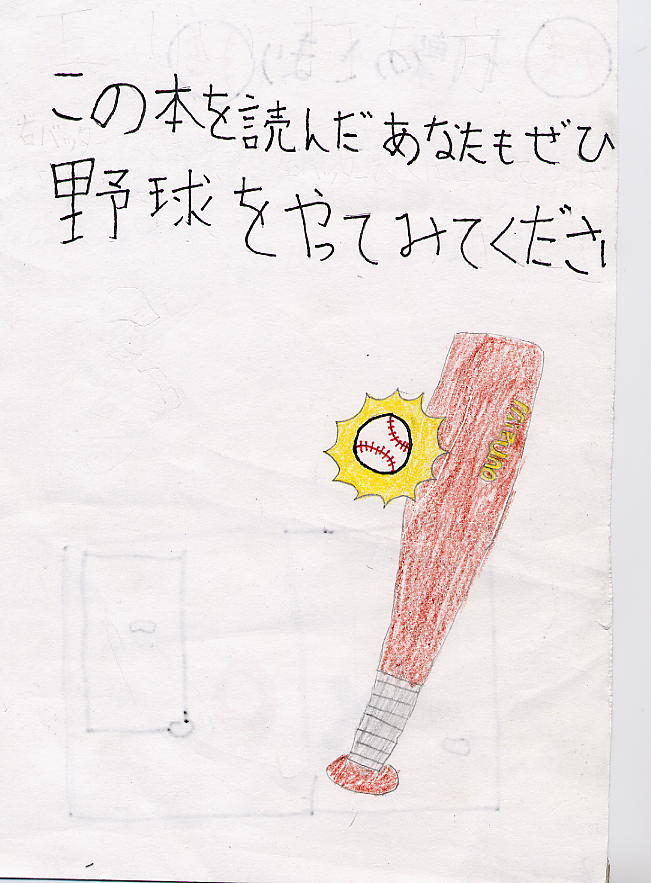 この本を読んだあなたもぜひ
野球をやってみてください